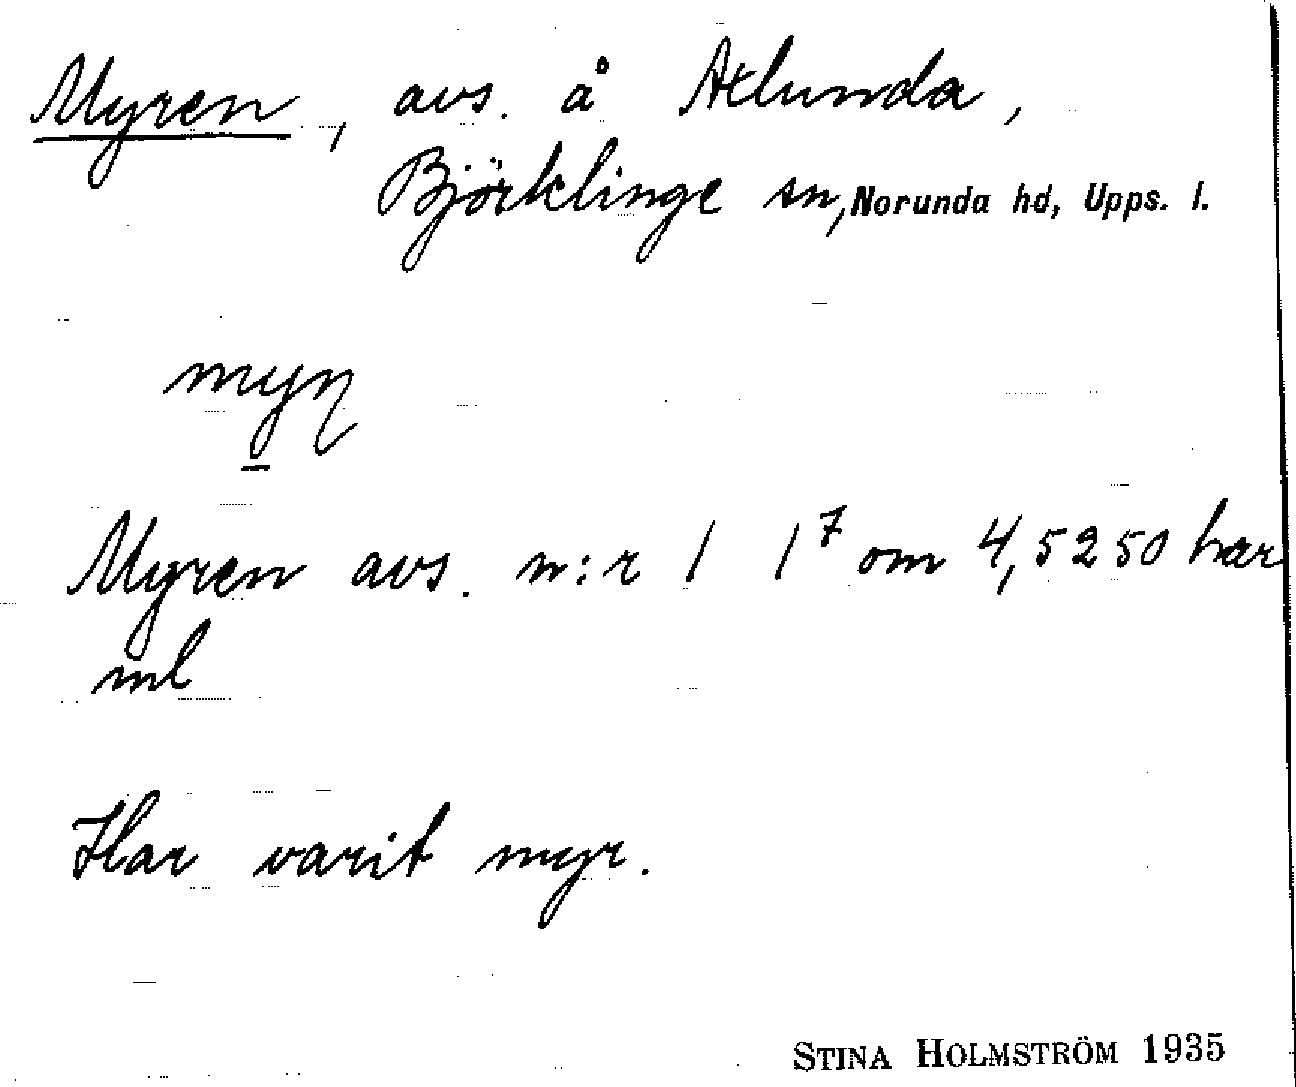 Myren, avs. å Axlunda,
Björklinge sn, Norunda hd, Upps. l.
Myren avs. n:r 1 1⁷ om 4,5250 har
ml
Har varit myr.
STINA HOLMSTRÖM 1935